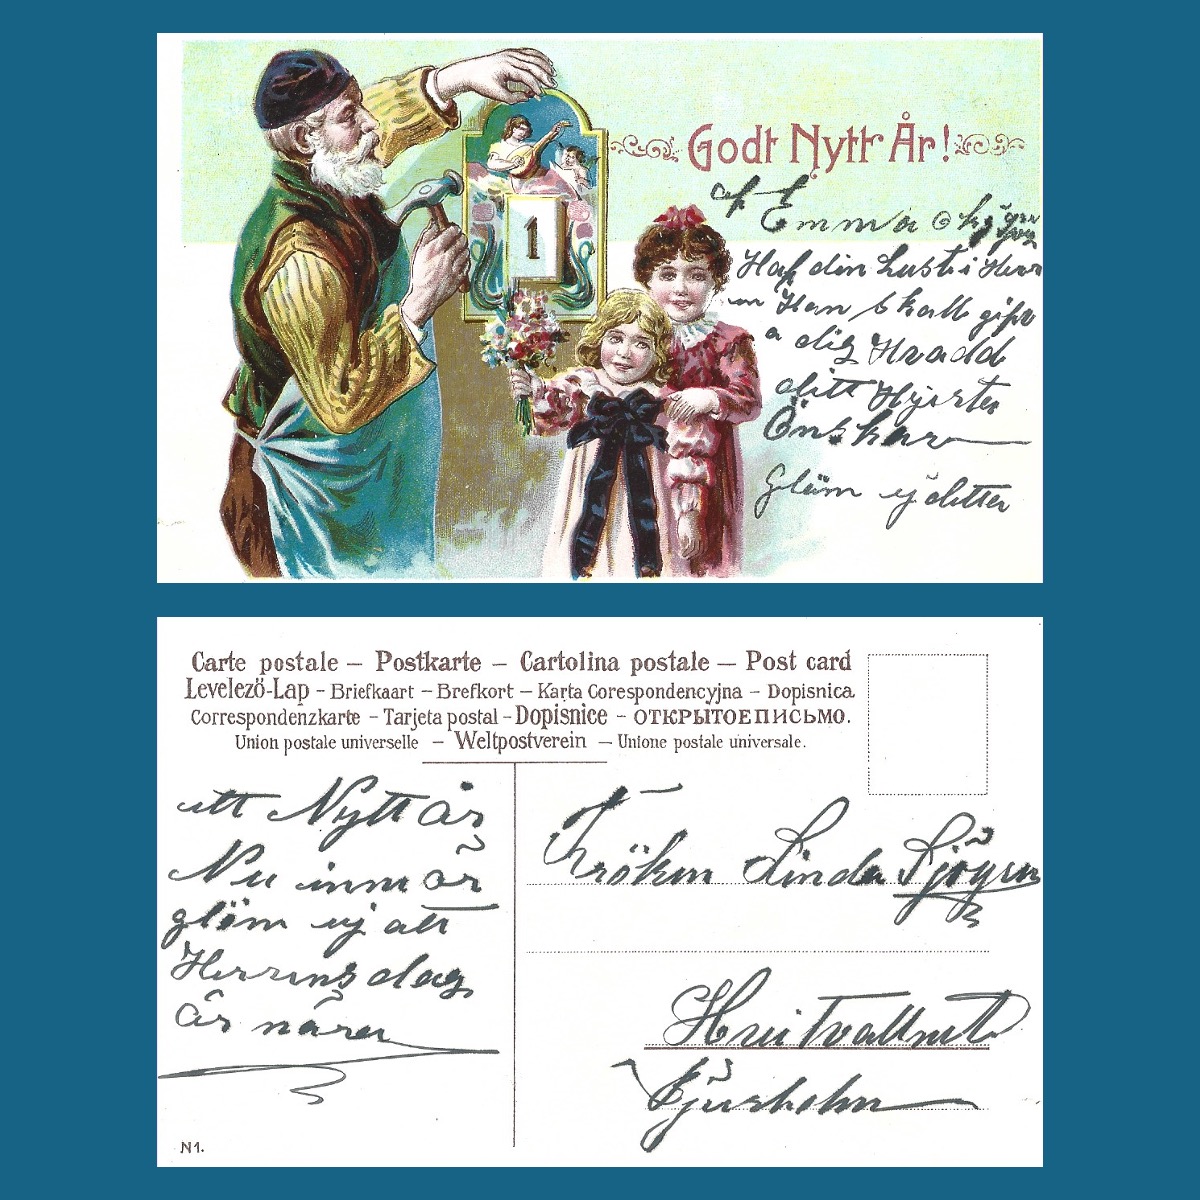 1
Godt Nytt År!
af Emma
Haf din Lust i Herr
en Han skall gifv
a dig Hvadd
ditt Hjerta
Önskar
Glöm ej detta
Carte postale – Postkarte – Cartolina postale – Post card
Levelező-Lap – Briefkaart – Brefkort – Karta Corespondencyjna – Dopisnica
Correspondenzkarte – Tarjeta postal – Dopisnice – ОТКРЫТОЕПИСЬМО.
Union postale universelle – Weltpostverein – Unione postale universale.
ett Nytt år
Nu inne är
glöm ej att
Herrens dag
är nära
Fröken Linda Sjögren
Djursholm
N1.